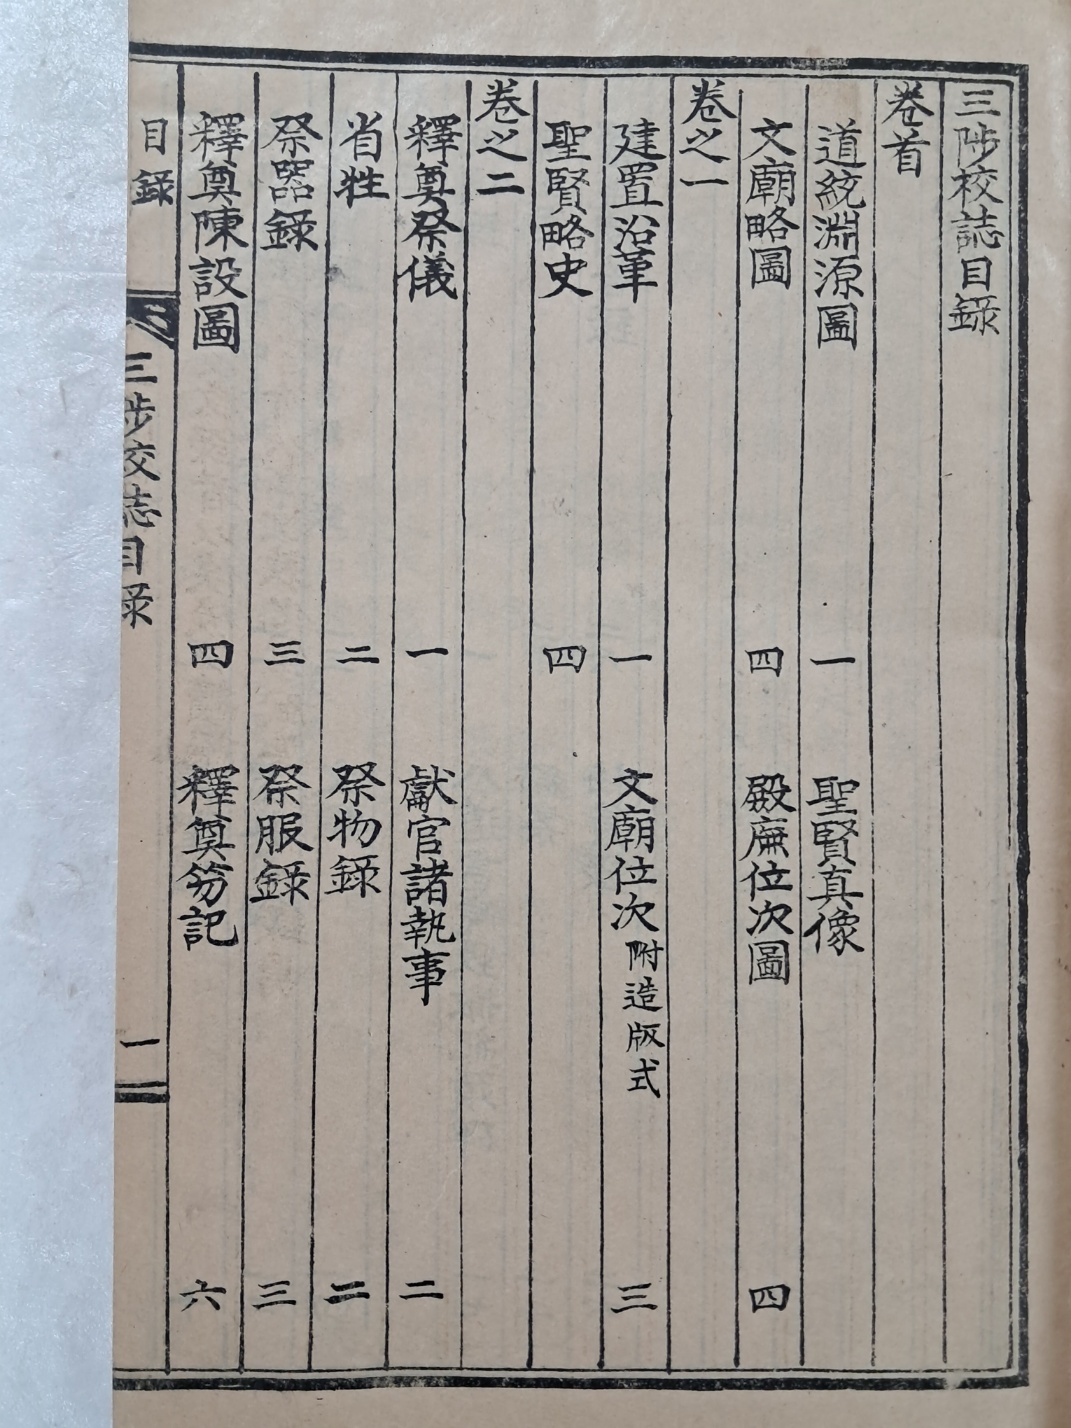 三陟校誌目録
卷首
道統淵源圖 一 聖賢真像
文廟略圖 四 殿廡位次圖 四
卷之一
建置沿革 一 文廟位次 附造版式 三
聖賢略史 四
卷之二
釋奠祭儀 一 獻官諸執事 二
省牲 二 祭物録 二
祭器録 三 祭服録 三
釋奠陳設圖 四 釋奠笏記 六
目録
三陟校誌目録 一